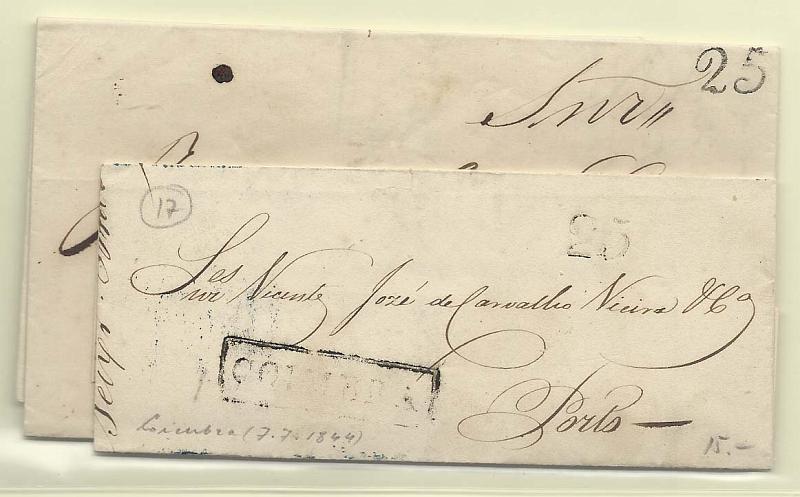 25
Snr
17
25
Snres Vicente José de Carvalho Vieira & Ca
COIMBRA
Porto —
Coimbra (7.7.1844)
15.-